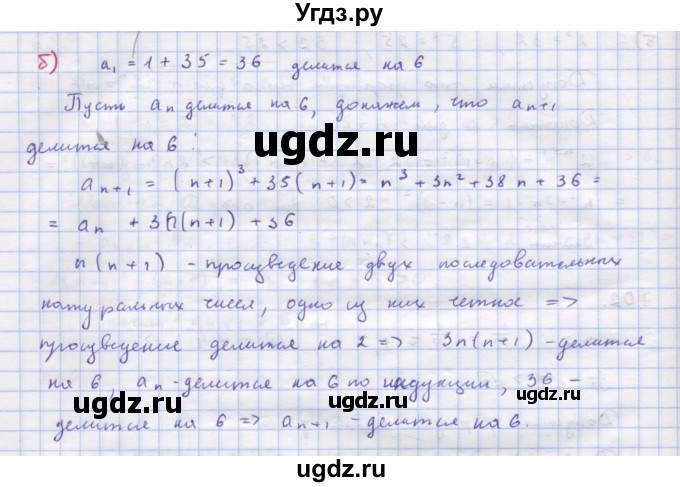 Угдз.ру
б) a₁ = 1 + 35 = 36 делится на 6
Пусть aₙ делится на 6, докажем, что aₙ₊₁
ugdz.ru
делится на 6 :
aₙ₊₁ = (n+1)³ + 35(n+1) = n³ + 3n² + 38n + 36 =
ugdz.ru
= aₙ + 3n(n+1) + 36
n(n+1) - произведение двух последовательных
натуральных чисел, одно из них четное =>
ugdz.ru
произведение делится на 2 => 3n(n+1) - делится
на 6, aₙ - делится на 6 по индукции, 36 -
ugdz.ru ugdz.ru
делится на 6 => aₙ₊₁ - делится на 6.
ugdz.ru